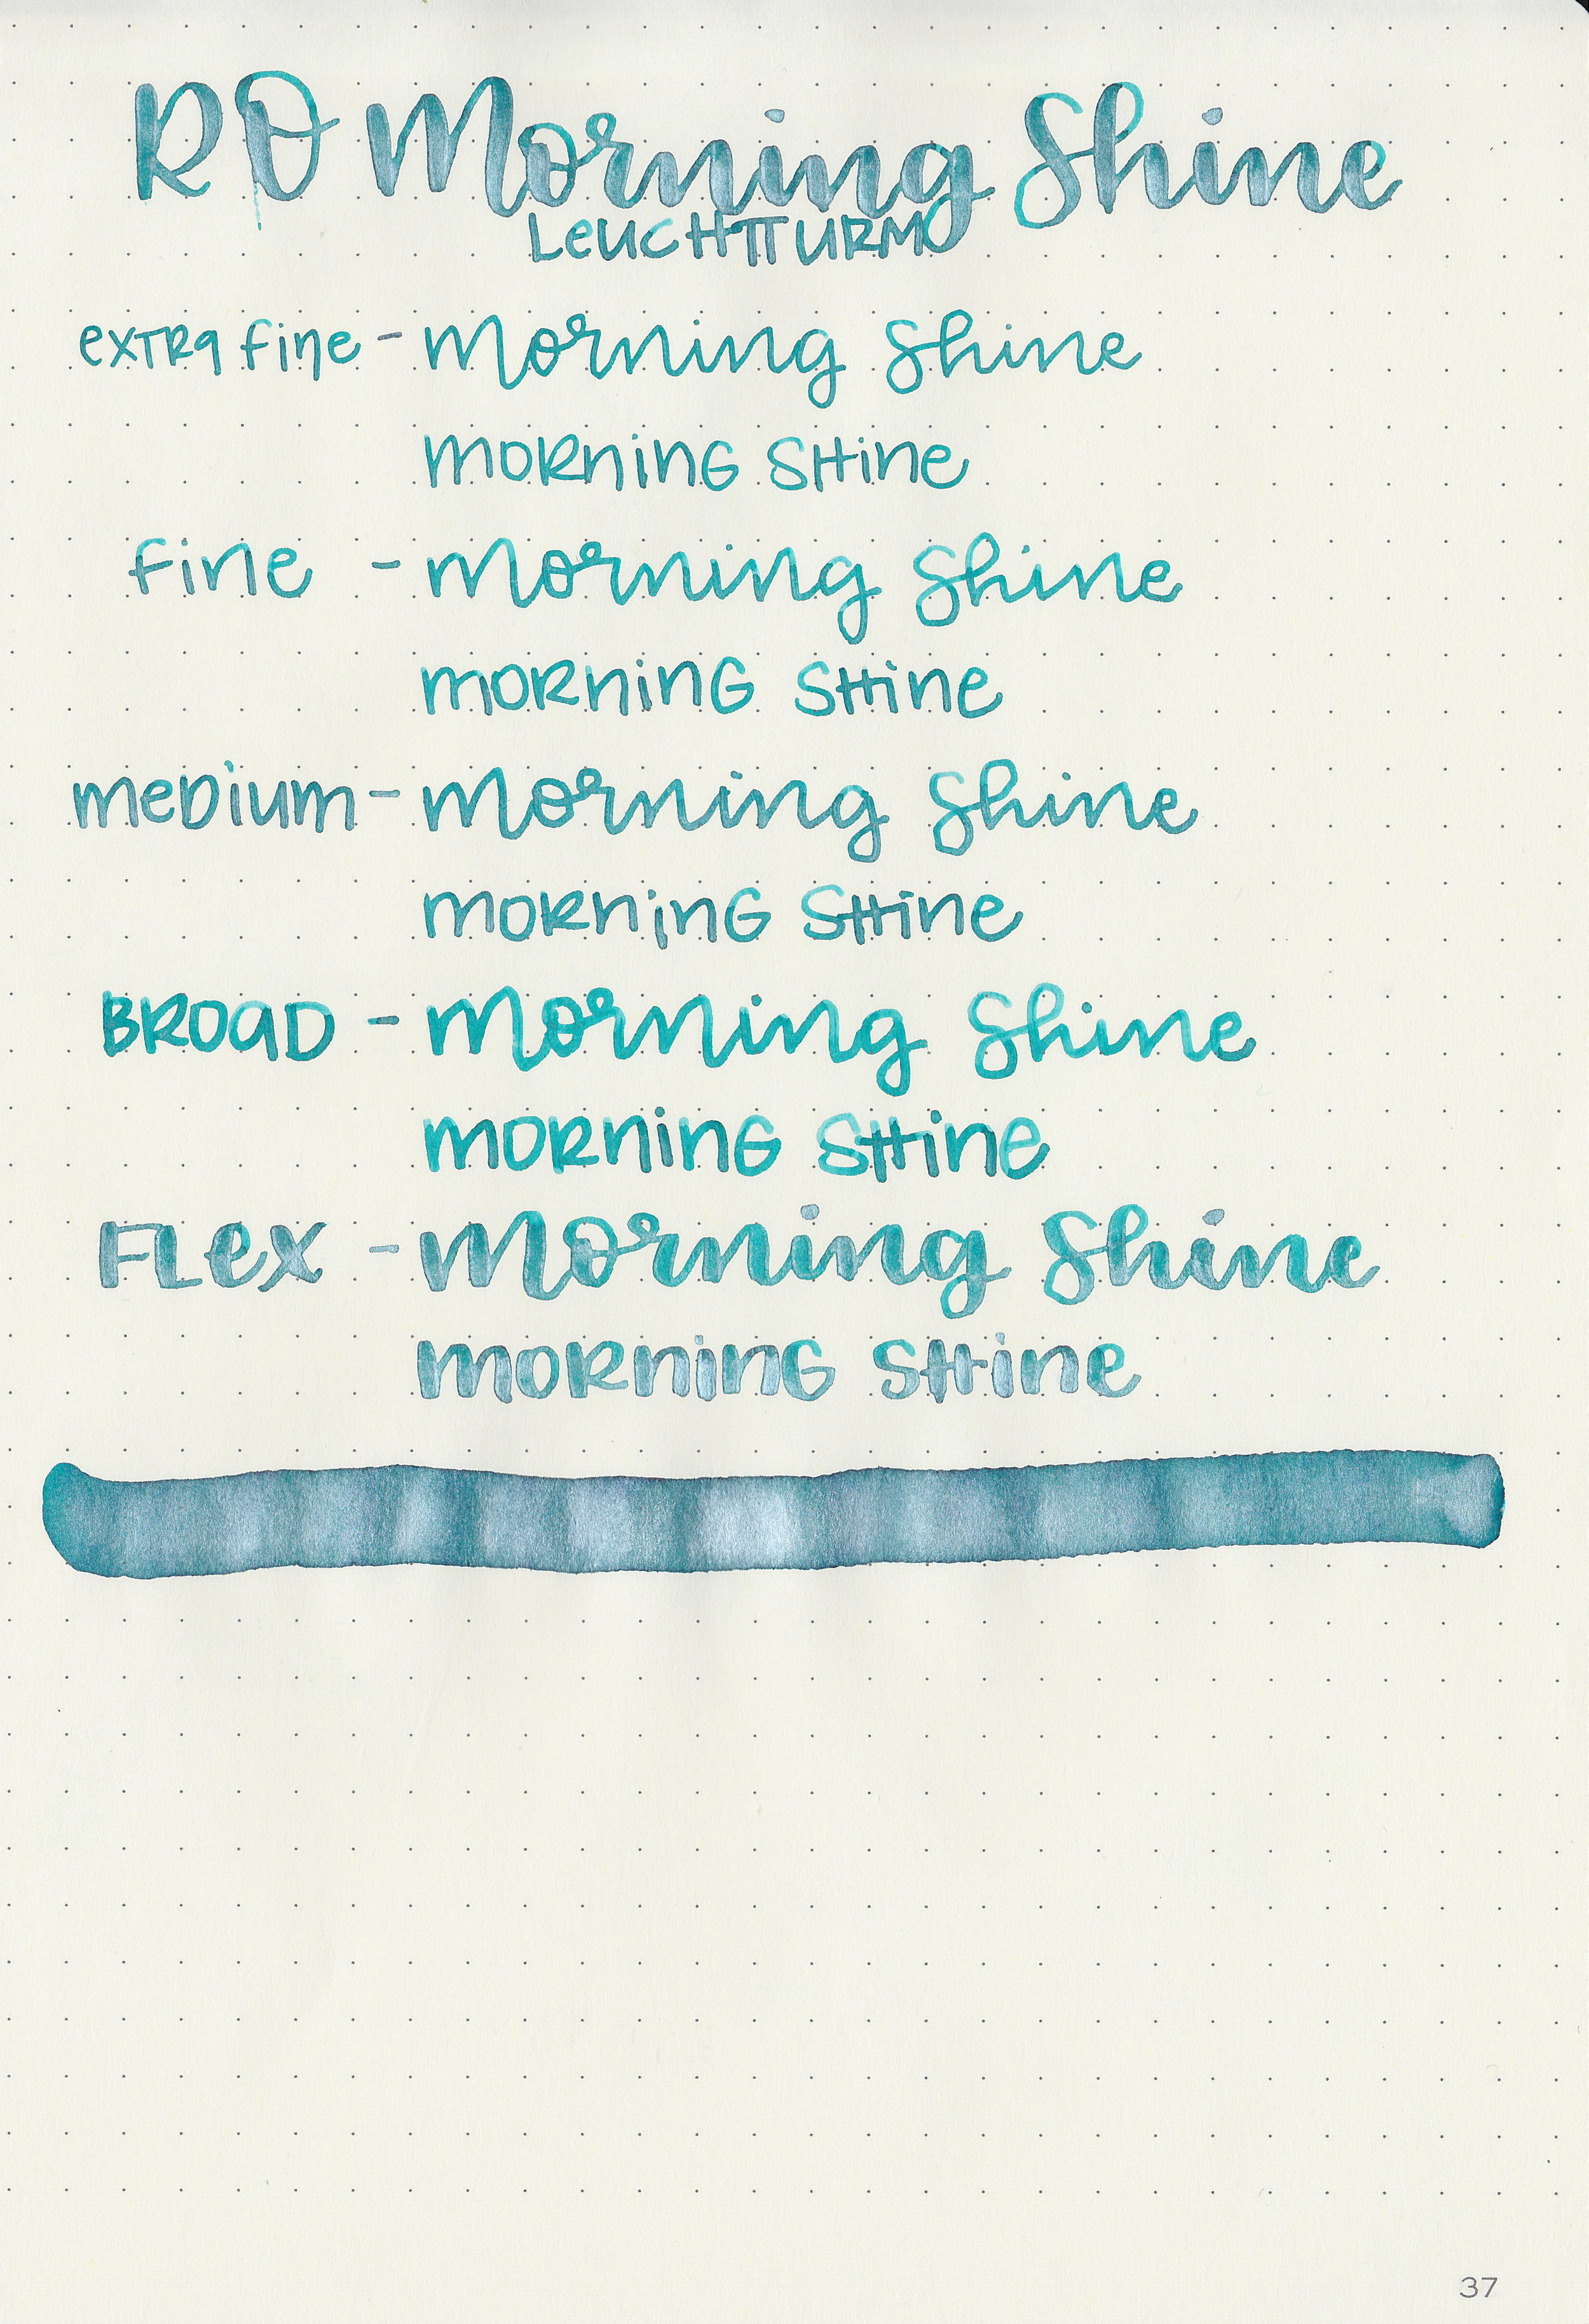 RO Morning Shine
LeUCHTTURM
exTRa fine - Morning Shine
MORninG SHine
fine - Morning Shine
MORninG SHine
meDium - Morning Shine
MORninG SHine
BROaD - Morning Shine
MORninG SHine
FLex - Morning Shine
MORninG SHine
37